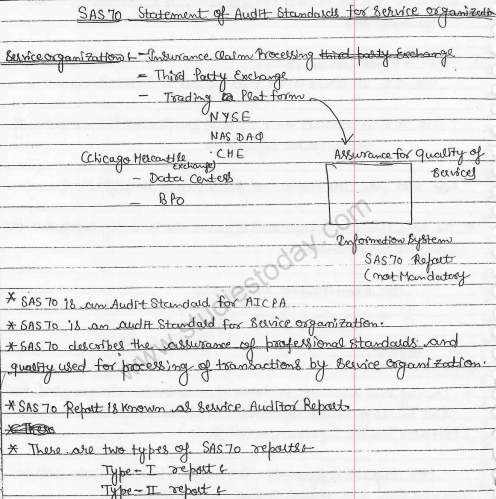 SAS 70 Statement of Audit Standards for Service organization
Service organization :- - Insurance Claim Processing third party Exchange
- Third Party Exchange
- Trading Platform
NYSE
NASDAQ
CME
(Chicago Mercantile Exchange)
Assurance for quality of services
- Data Centers
- BPO
Information System
SAS 70 Report
(not Mandatory
* SAS 70 is an Audit Standard for AICPA
* SAS 70 is an audit Standard for Service organization.
* SAS 70 describes the assurance of professional standards and
quality used for processing of transactions by Service Organization.
* SAS 70 Report is known as Service Auditor Report.
* There
* There are two types of SAS 70 reports :-
Type - I report :
Type - II report :
www.studiestoday.com